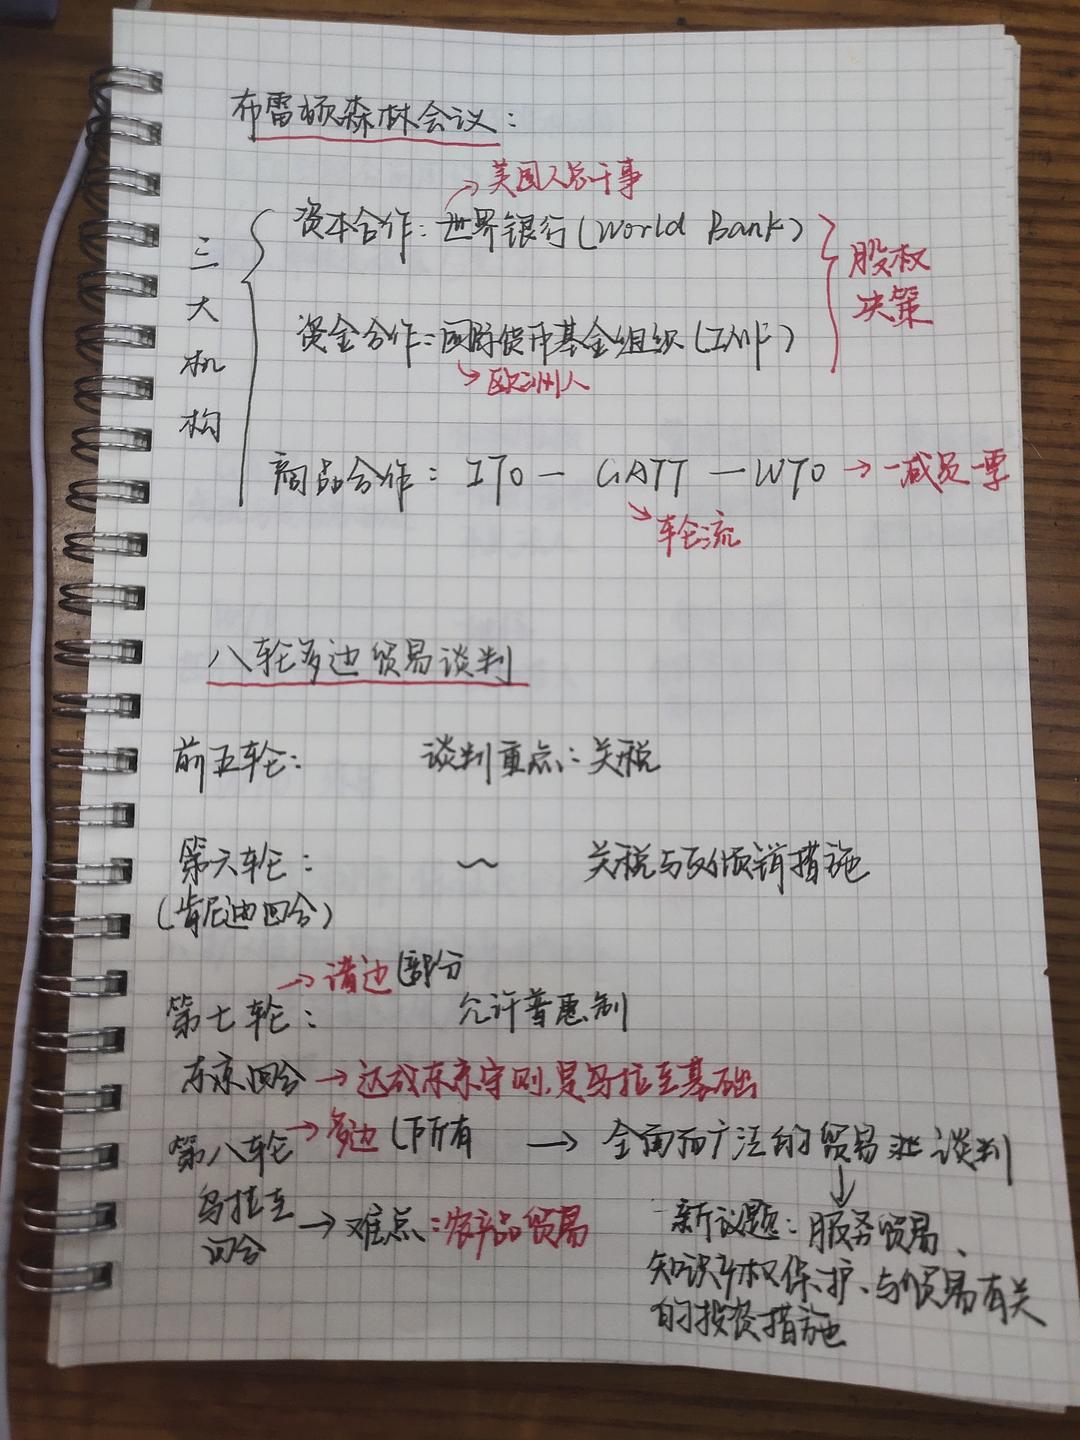 布雷顿森林会议:
→美国人总干事
资本合作:世界银行(World Bank)
股权
决策
三大机构
资金合作:国际货币基金组织(IMF)
→欧洲人
商品合作: ITO — GATT — WTO → 一成员一票
→轮流
八轮多边贸易谈判
前五轮: 谈判重点:关税
第六轮: ~ 关税与反倾销措施
(肯尼迪回合)
→诸边(部分
第七轮: 允许普惠制
东京回合→达成东京守则,是乌拉圭基础
第八轮→多边(所有 → 全面而广泛的贸易谈判
乌拉圭
回合
→难点:农产品贸易
新议题:服务贸易、
知识产权保护、与贸易有关
的投资措施